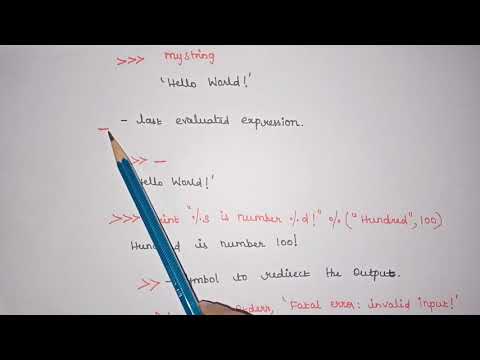 >>> mystring
'Hello World!'
_ - last evaluated expression.
>> _
Hello World!'
>>> print "%s is number %d!" % ("Hundred", 100)
Hundred is number 100!
>> - symbol to redirect the output.
'Fatal error: invalid input!'